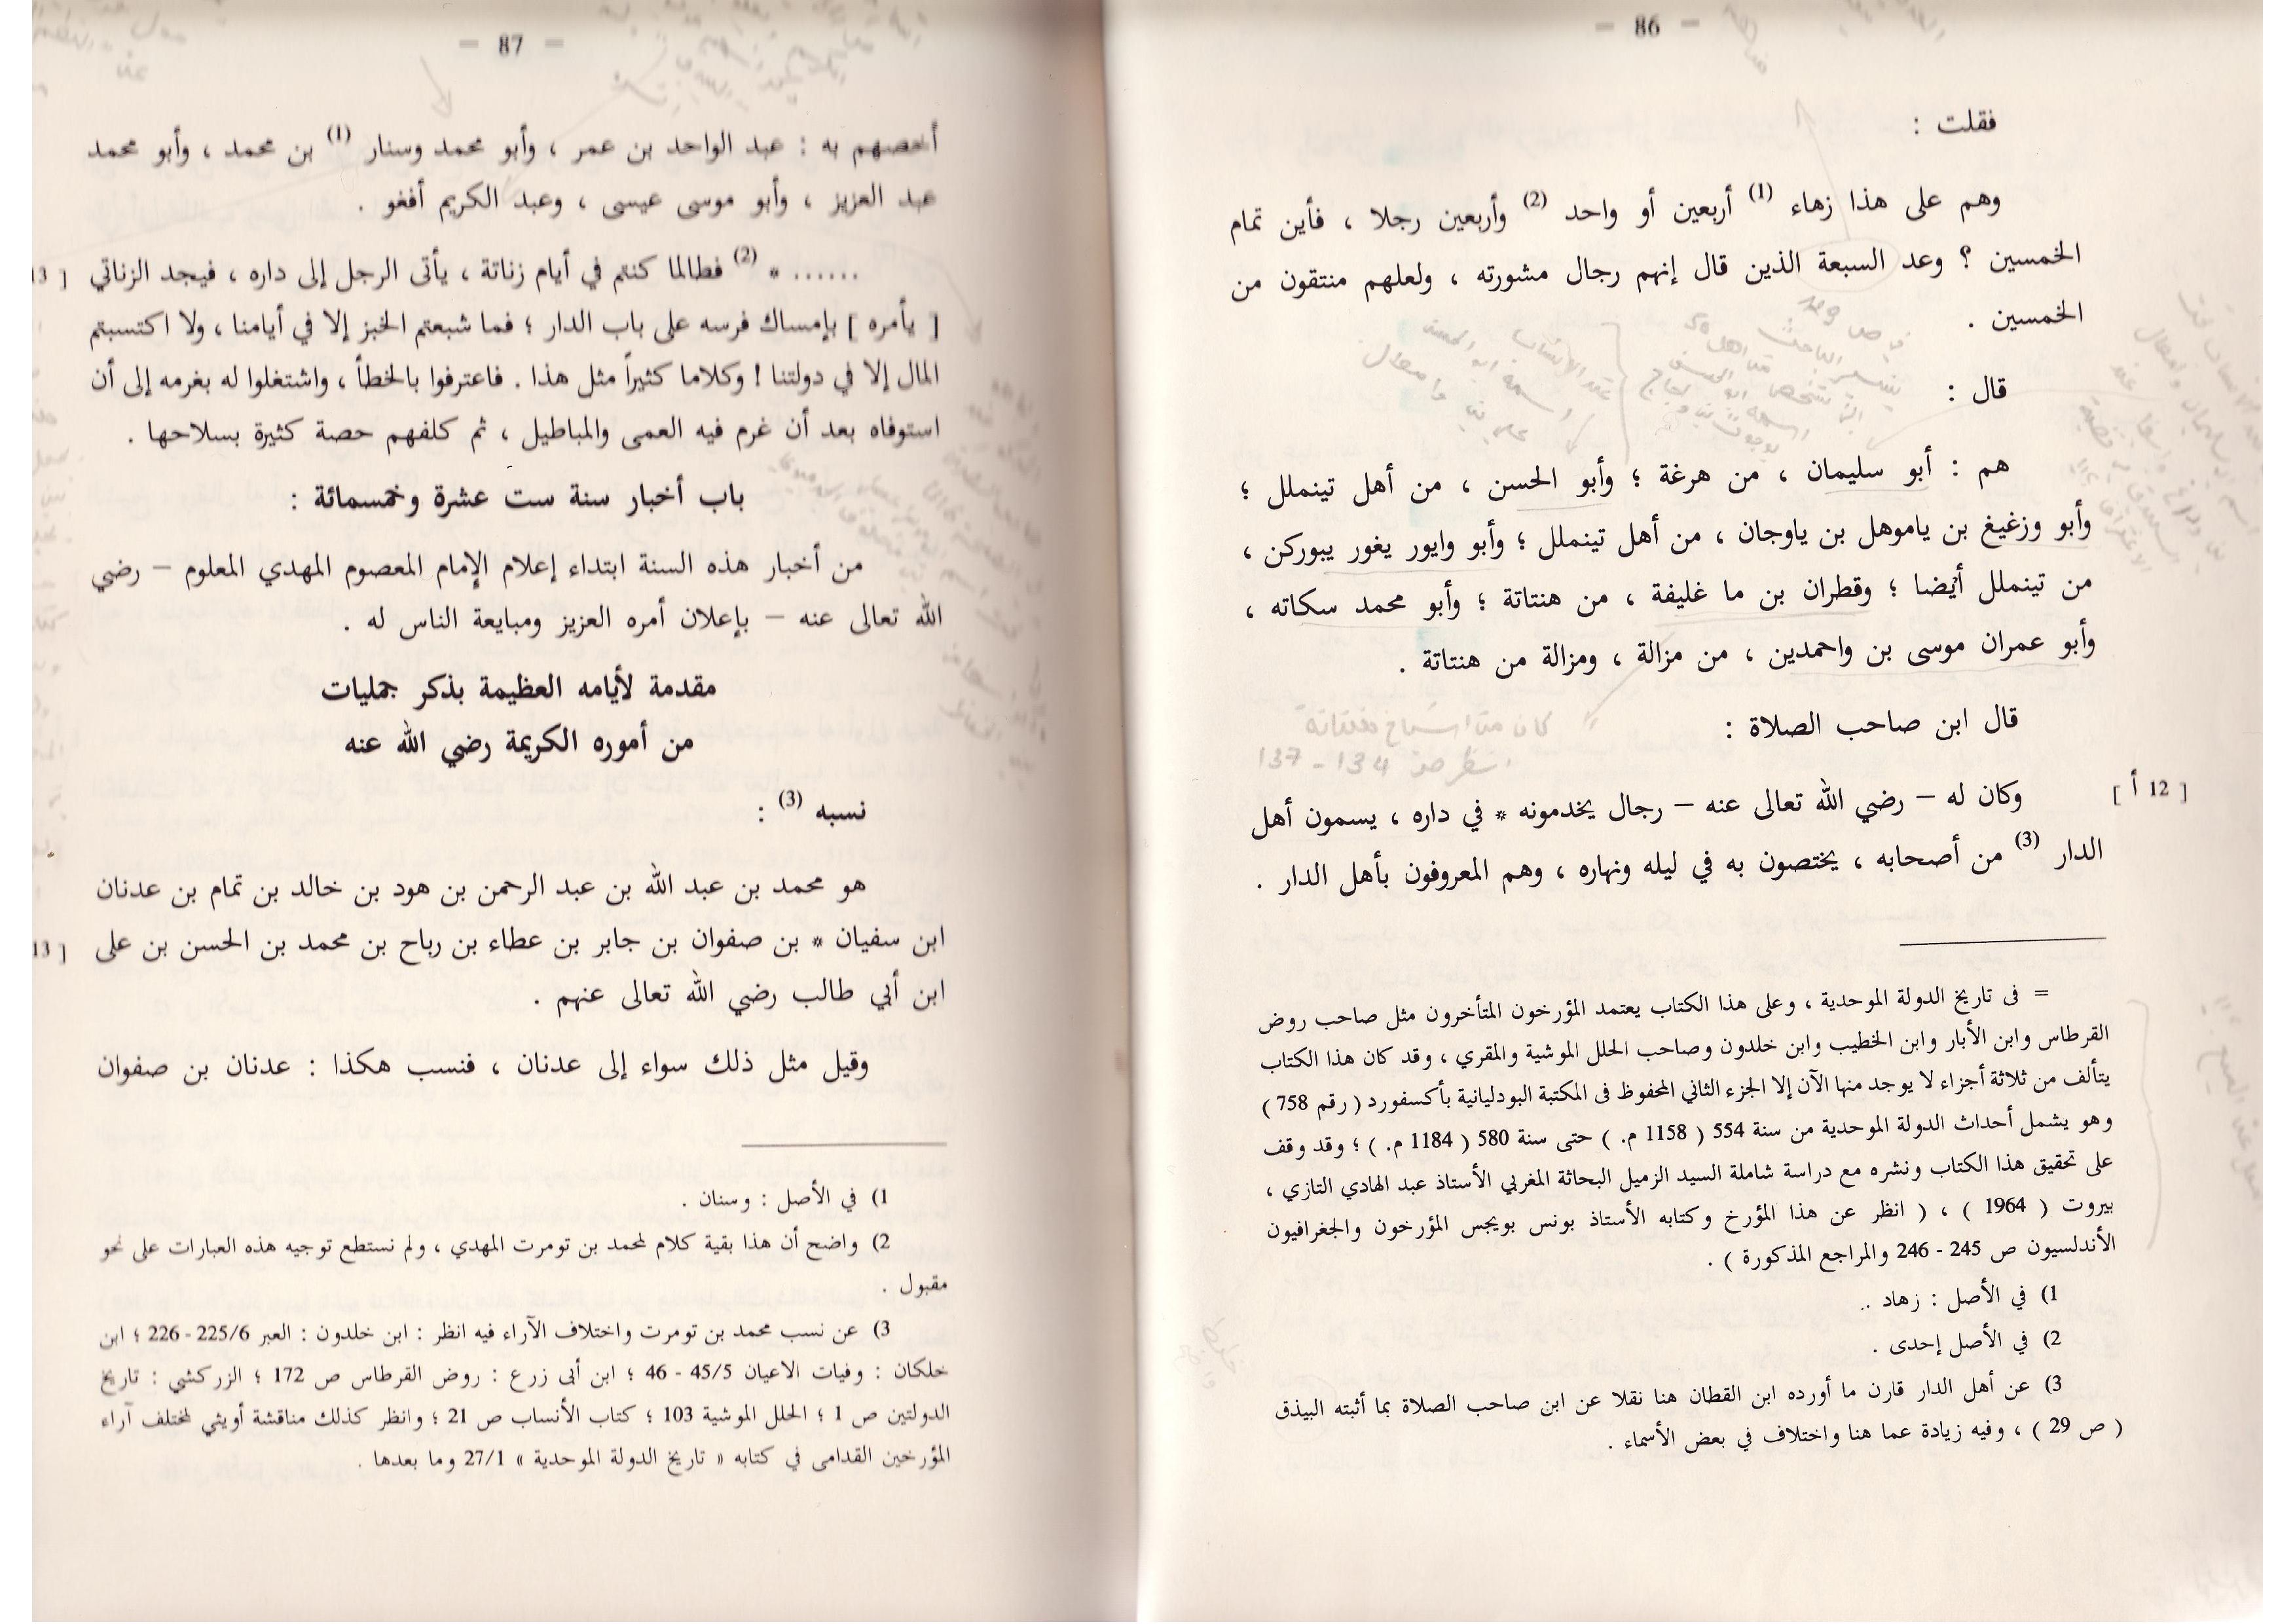 — 86 —
فقلت :
وهم على هذا زهاء (1) أربعين أو واحد (2) وأربعين رجلا ، فأين تمام
الخمسين ؟ وعد السبعة الذين قال إنهم رجال مشورته ، ولعلهم منتقون من
الخمسين .
قال :
هم : أبو سليمان ، من هرغة ؛ وأبو الحسن ، من أهل تينملل ؛
وأبو وزغيغ بن ياموهل بن ياوجان ، من أهل تينملل ؛ وأبو وايور يغور يبوركن ،
من تينملل أيضا ؛ وقطران بن ما غليفة ، من هنتاتة ؛ وأبو محمد سكاته ،
وأبو عمران موسى بن واحمدين ، من مزالة ، ومزالة من هنتاتة .
قال ابن صاحب الصلاة :
انظر ص 134 - 137
[ 12 أ ]
وكان له – رضي الله تعالى عنه – رجال يخدمونه * في داره ، يسمون أهل
الدار (3) من أصحابه ، يختصون به في ليله ونهاره ، وهم المعروفون بأهل الدار .
= فى تاريخ الدولة الموحدية ، وعلى هذا الكتاب يعتمد المؤرخون المتأخرون مثل صاحب روض
القرطاس وابن الأبار وابن الخطيب وابن خلدون وصاحب الحلل الموشية والمقري ، وقد كان هذا الكتاب
يتألف من ثلاثة أجزاء لا يوجد منها الآن إلا الجزء الثاني المحفوظ فى المكتبة البودليانية بأكسفورد ( رقم 758 )
وهو يشمل أحداث الدولة الموحدية من سنة 554 ( 1158 م. ) حتى سنة 580 ( 1184 م. ) ؛ وقد وقف
على تحقيق هذا الكتاب ونشره مع دراسة شاملة السيد الزميل البحاثة المغربي الأستاذ عبد الهادي التازي ،
بيروت ( 1964 ) ، ( انظر عن هذا المؤرخ وكتابه الأستاذ بونس بويجس المؤرخون والجغرافيون
الأندلسيون ص 245 - 246 والمراجع المذكورة ) .
1) في الأصل : زهاد ..
2) في الأصل إحدى .
3) عن أهل الدار قارن ما أورده ابن القطان هنا نقلا عن ابن صاحب الصلاة بما أثبته البيذق
( ص 29 ) ، وفيه زيادة عما هنا واختلاف في بعض الأسماء .
— 87 —
أخصهم به : عبد الواحد بن عمر ، وأبو محمد وسنار (1) بن محمد ، وأبو محمد
عبد العزيز ، وأبو موسى عيسى ، وعبد الكريم أفغو .
...... * (2) فطالما كنتم في أيام زناتة ، يأتى الرجل إلى داره ، فيجد الزناتي [ 13
[ يأمره ] بإمساك فرسه على باب الدار ؛ فما شبعتم الخبز إلا في أيامنا ، ولا اكتسبتم
المال إلا في دولتنا ! وكلاما كثيراً مثل هذا . فاعترفوا بالخطأ ، واشتغلوا له بغرمه إلى أن
استوفاه بعد أن غرم فيه العمى والمباطيل ، ثم كلفهم حصة كثيرة بسلاحها .
باب أخبار سنة ست عشرة وخمسمائة :
من أخبار هذه السنة ابتداء إعلام الإمام المعصوم المهدي المعلوم – رضي
الله تعالى عنه – بإعلان أمره العزيز ومبايعة الناس له .
مقدمة لأيامه العظيمة بذكر جمليات
من أموره الكريمة رضي الله عنه
نسبه (3) :
هو محمد بن عبد الله بن عبد الرحمن بن هود بن خالد بن تمام بن عدنان
ابن سفيان * بن صفوان بن جابر بن عطاء بن رباح بن محمد بن الحسن بن على [ 13
ابن أبي طالب رضي الله تعالى عنهم .
وقيل مثل ذلك سواء إلى عدنان ، فنسب هكذا : عدنان بن صفوان
1) في الأصل : وسنان .
2) واضح أن هذا بقية كلام لمحمد بن تومرت المهدي ، ولم نستطع توجيه هذه العبارات على نحو
مقبول .
3) عن نسب محمد بن تومرت واختلاف الآراء فيه انظر : ابن خلدون : العبر 225/6 - 226 ؛ ابن
خلكان : وفيات الاعيان 45/5 - 46 ؛ ابن أبى زرع : روض القرطاس ص 172 ؛ الزركشي : تاريخ
الدولتين ص 1 ؛ الحلل الموشية 103 ؛ كتاب الأنساب ص 21 ؛ وانظر كذلك مناقشة أويثي لمختلف آراء
المؤرخين القدامى في كتابه « تاريخ الدولة الموحدية » 27/1 وما بعدها .